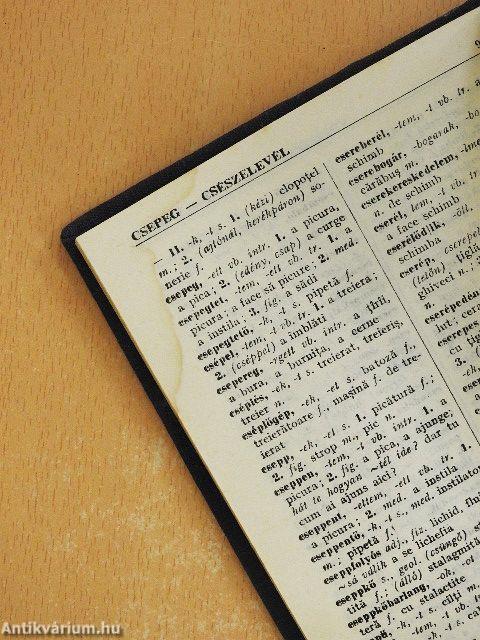 CSEPEG — CSÉSZELEVÉL
— II. -k, -t s. 1. (kézi) clopoțel
m.; 2. (ajtónál, kerékpáron) so-
nerie f.
csepeg, -ett vb. intr. 1. a picura,
a pica; 2. (edény, csap) a curge
csepegtet, -tem, -ett vb. tr. 1. a
picura; a face să picure; 2. med.
a instila; 3. fig. a sădi
csepegtető, -k, -t s. pipetă f.
csépel, -tem, -t vb. tr. 1. a treiera;
2. (cséppel) a îmblăti
csepereg, -rgett vb. intr. a țîrîi,
a bura, a burnița, a cerne
cséplés, -ek, -t s. treierat, treieriș,
treier n.
cséplőgép, -ek, -et s. batoză f.,
treierătoare f., mașină f. de tre-
ierat
csepp, -ek, -et s. 1. picătură f.;
2. fig. strop m., pic n.
cseppen, -tem, -t vb. intr. 1. a
picura; 2. fig. a pica, a ajunge;
hát te hogyan ~tél ide? dar tu
cum ai ajuns aici?
cseppent, -ettem, -ett vb. tr. 1.
a picura; 2. med. a instila
cseppentő, -k, -t s. med. instilator
m.; pipetă f.
cseppfolyós adj., fiz. lichid, flui
~sá válik a se lichefia
cseppkő s., geol. (csüngő)
tită f.; (álló) stalagmită
cseppkőbarlang, -ok, -ot
teră f. cu stalactite
-k, -t s. cîlți m.
cserebeél, -tem, -t vb. tr. a
schimb
cserebogár, -bogarak, -bo
cărăbuș m.
cserekereskedelem, -lme
n. de schimb
cserél, -tem, -t vb. tr.
a face schimb
cserélődik, -ött
schimba
cserép, cserepe
(telőn) țiglă
ghiveci n.; 2
cserépedén
lut; cera
cserepes
cu țig
3.
Antikvárium.hu